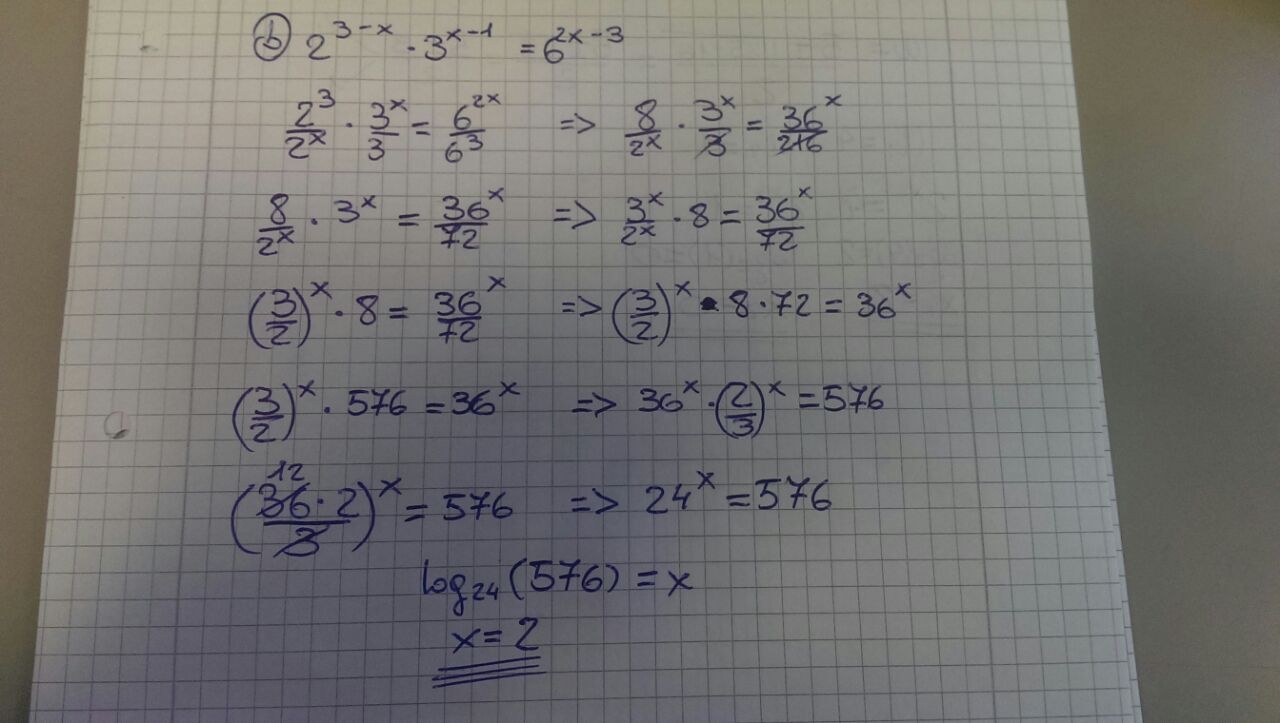 b) 2^(3-x) · 3^(x-1) = 6^(2x-3)
2^3/2^x · 3^x/3 = 6^(2x)/6^3 => 8/2^x · 3^x/3 = 36^x/216
8/2^x · 3^x = 36^x/72 => 3^x/2^x · 8 = 36^x/72
(3/2)^x · 8 = 36^x/72 => (3/2)^x · 8 · 72 = 36^x
(3/2)^x · 576 = 36^x => 36^x · (2/3)^x = 576
12
(36 · 2/3)^x = 576 => 24^x = 576
log_24 (576) = x
x = 2